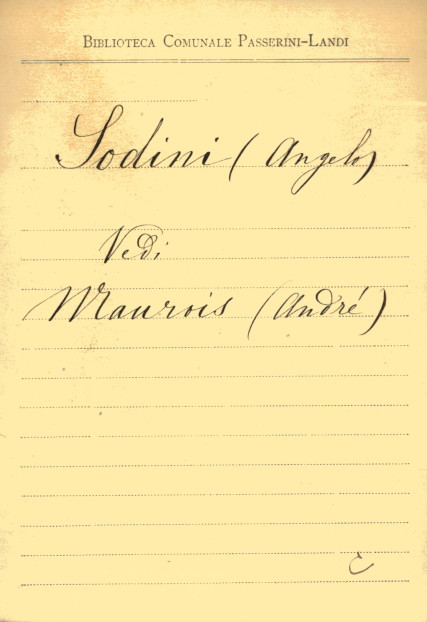 BIBLIOTECA COMUNALE PASSERINI-LANDI
Sodini (Angelo)
Vedi
Maurois (André)